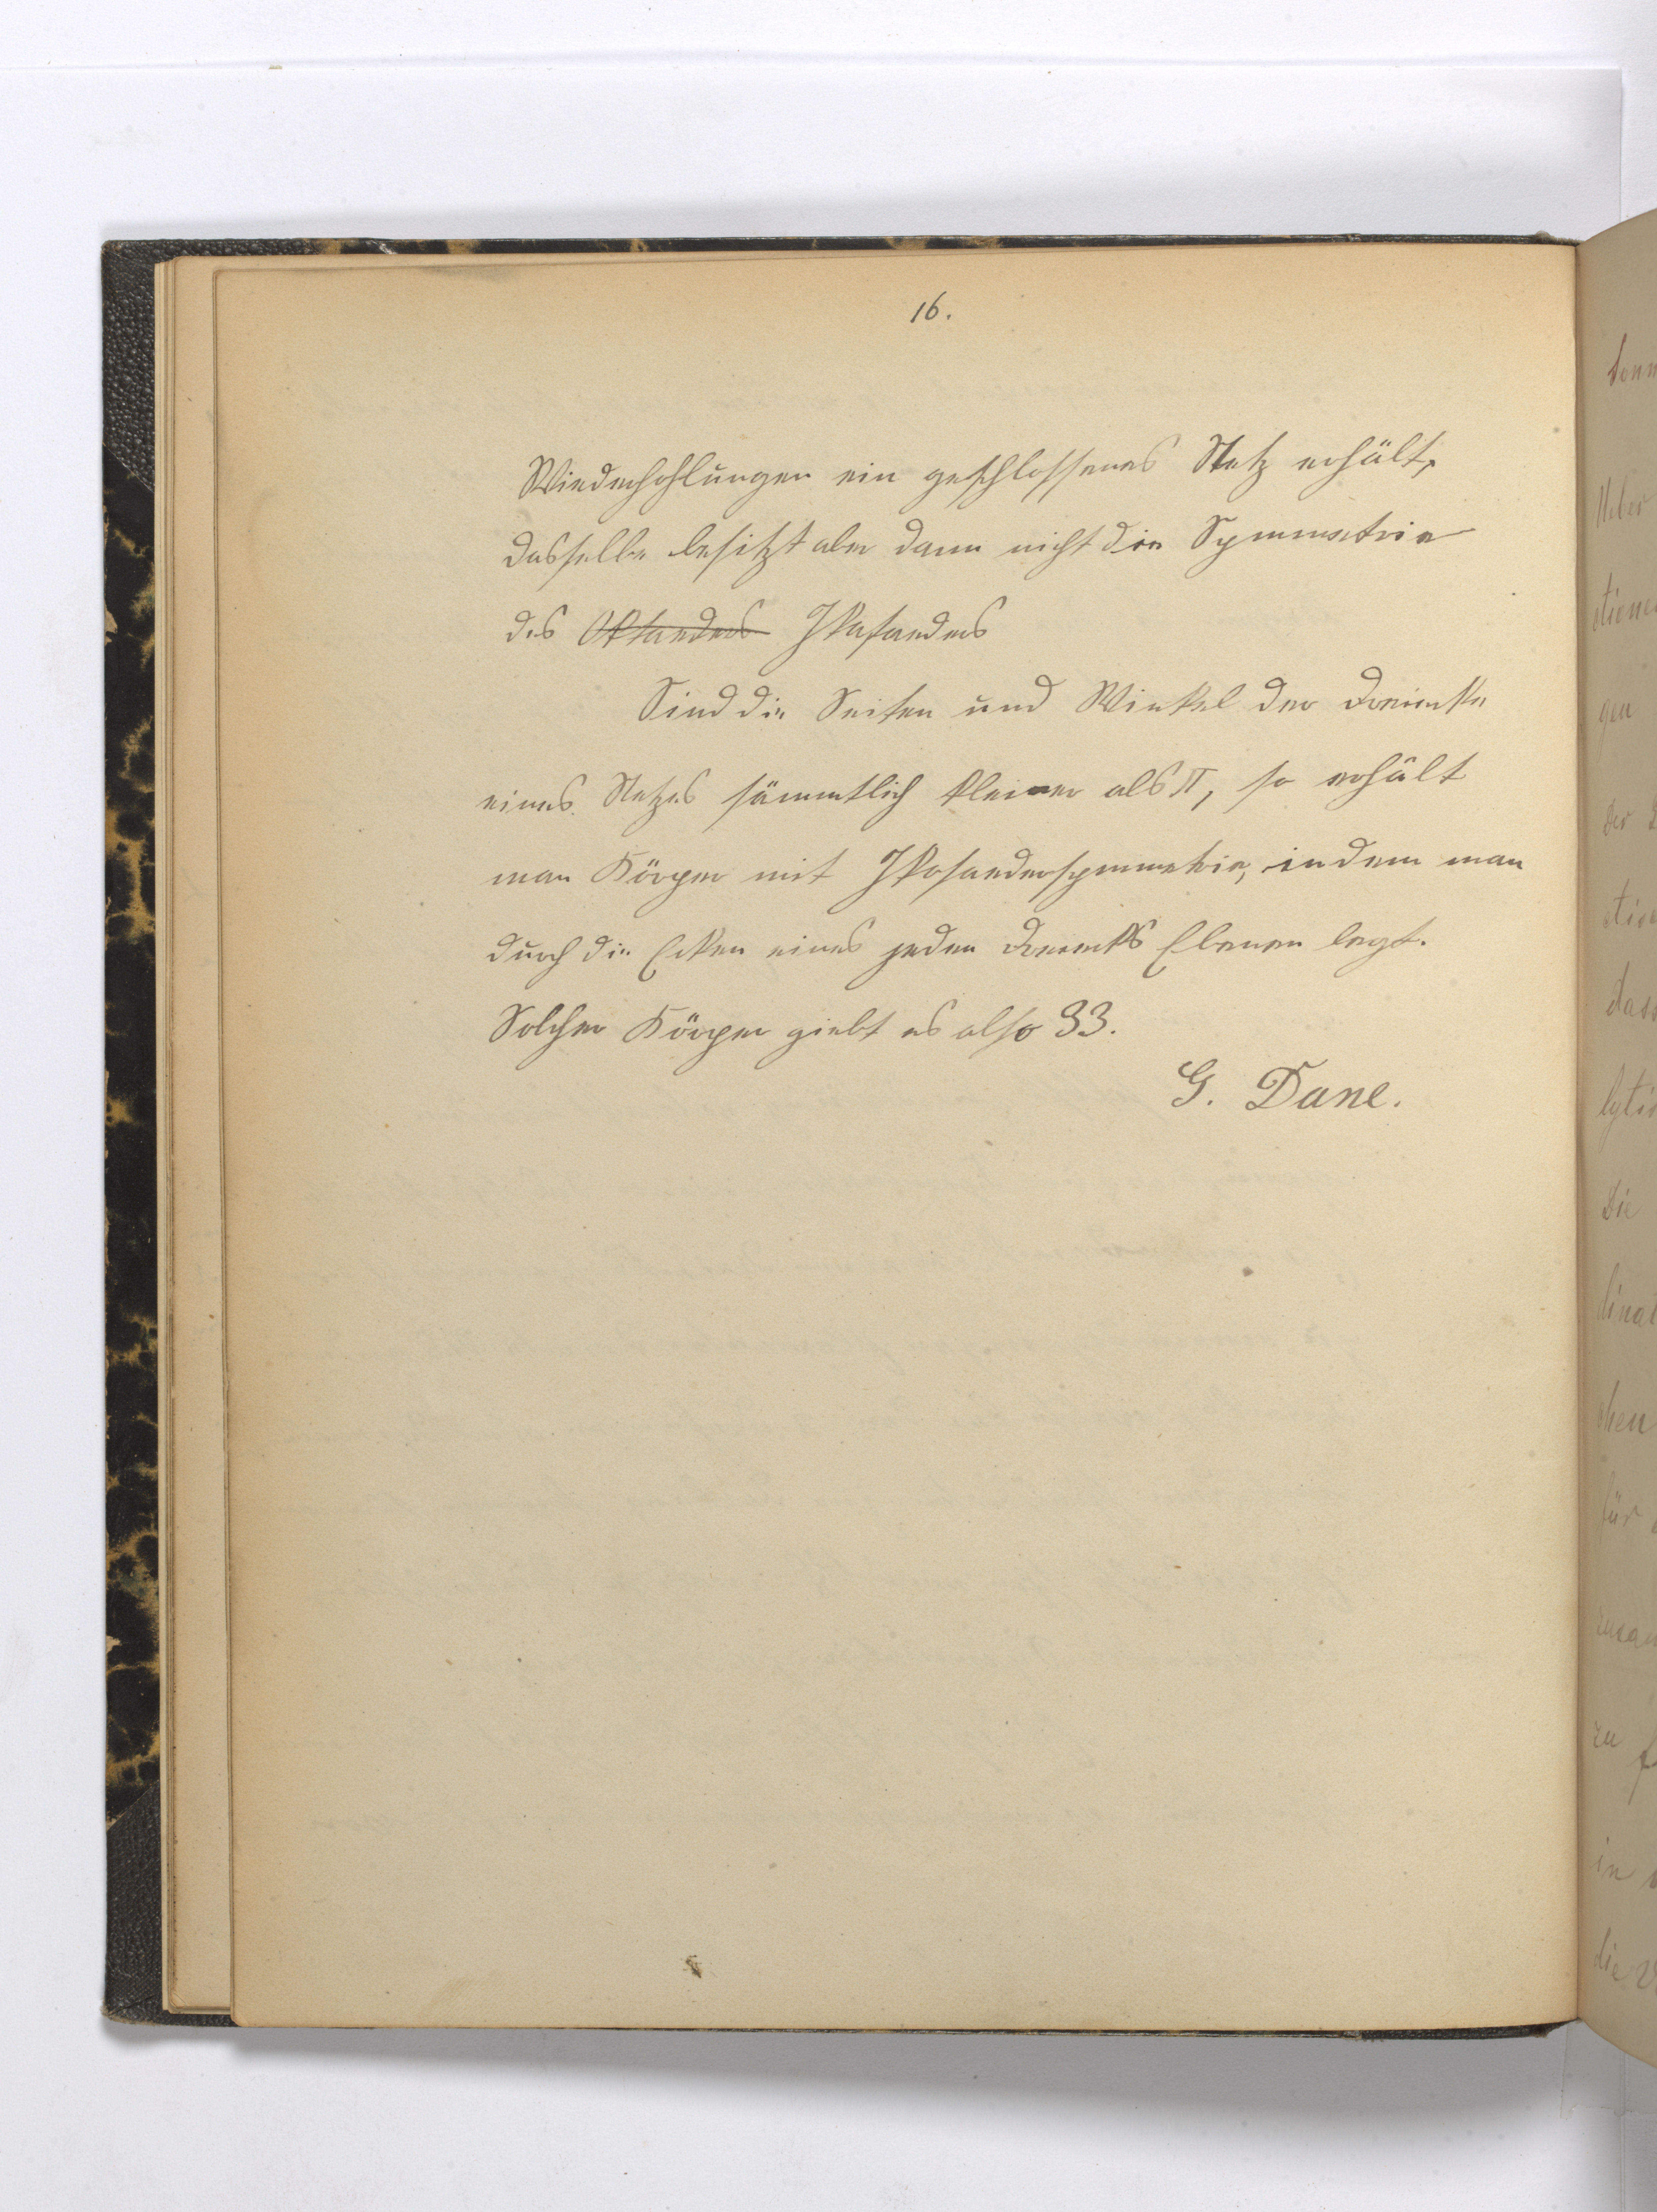 16.
Wiederhohlungen ein geschlossenes Netz erhält,
dasselbe besitzt aber dann nicht die Symmetrie
des Oktaeders Ikosaeders
Sind die Seiten und Winkel der Dreiecke
eines Netzes sämmtlich kleiner als π, so erhält
man Körper mit Ikosaedersymmetrie, indem man
durch die Ecken eines jeden Dreiecks Ebenen legt.
Solcher Körper giebt es also 33.
G. Dane.
Ueber
gen
der
dass
die
für
zu
in